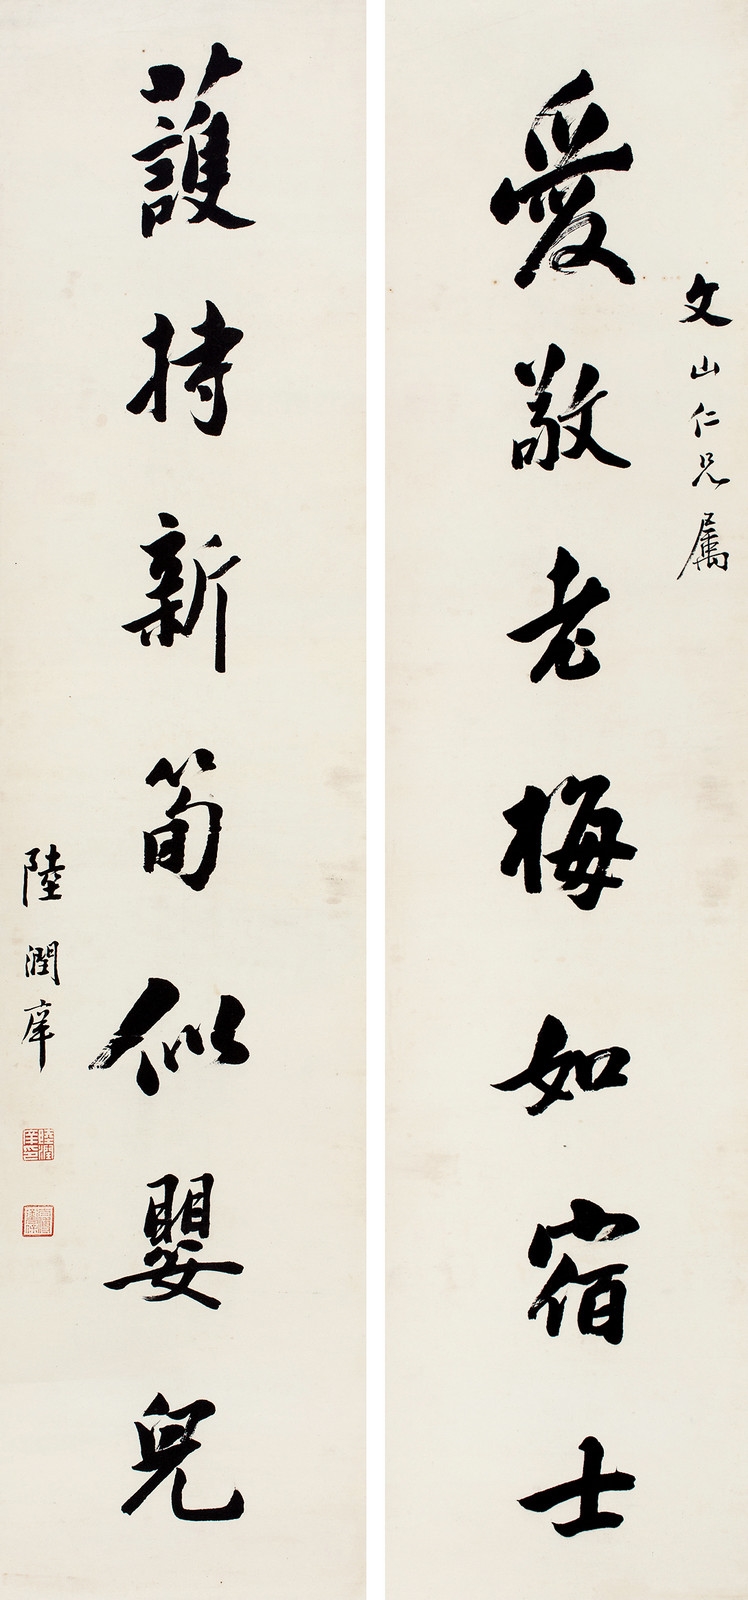 文山仁兄属
愛敬老梅如宿士
護持新筍似嬰兒
陸潤庠